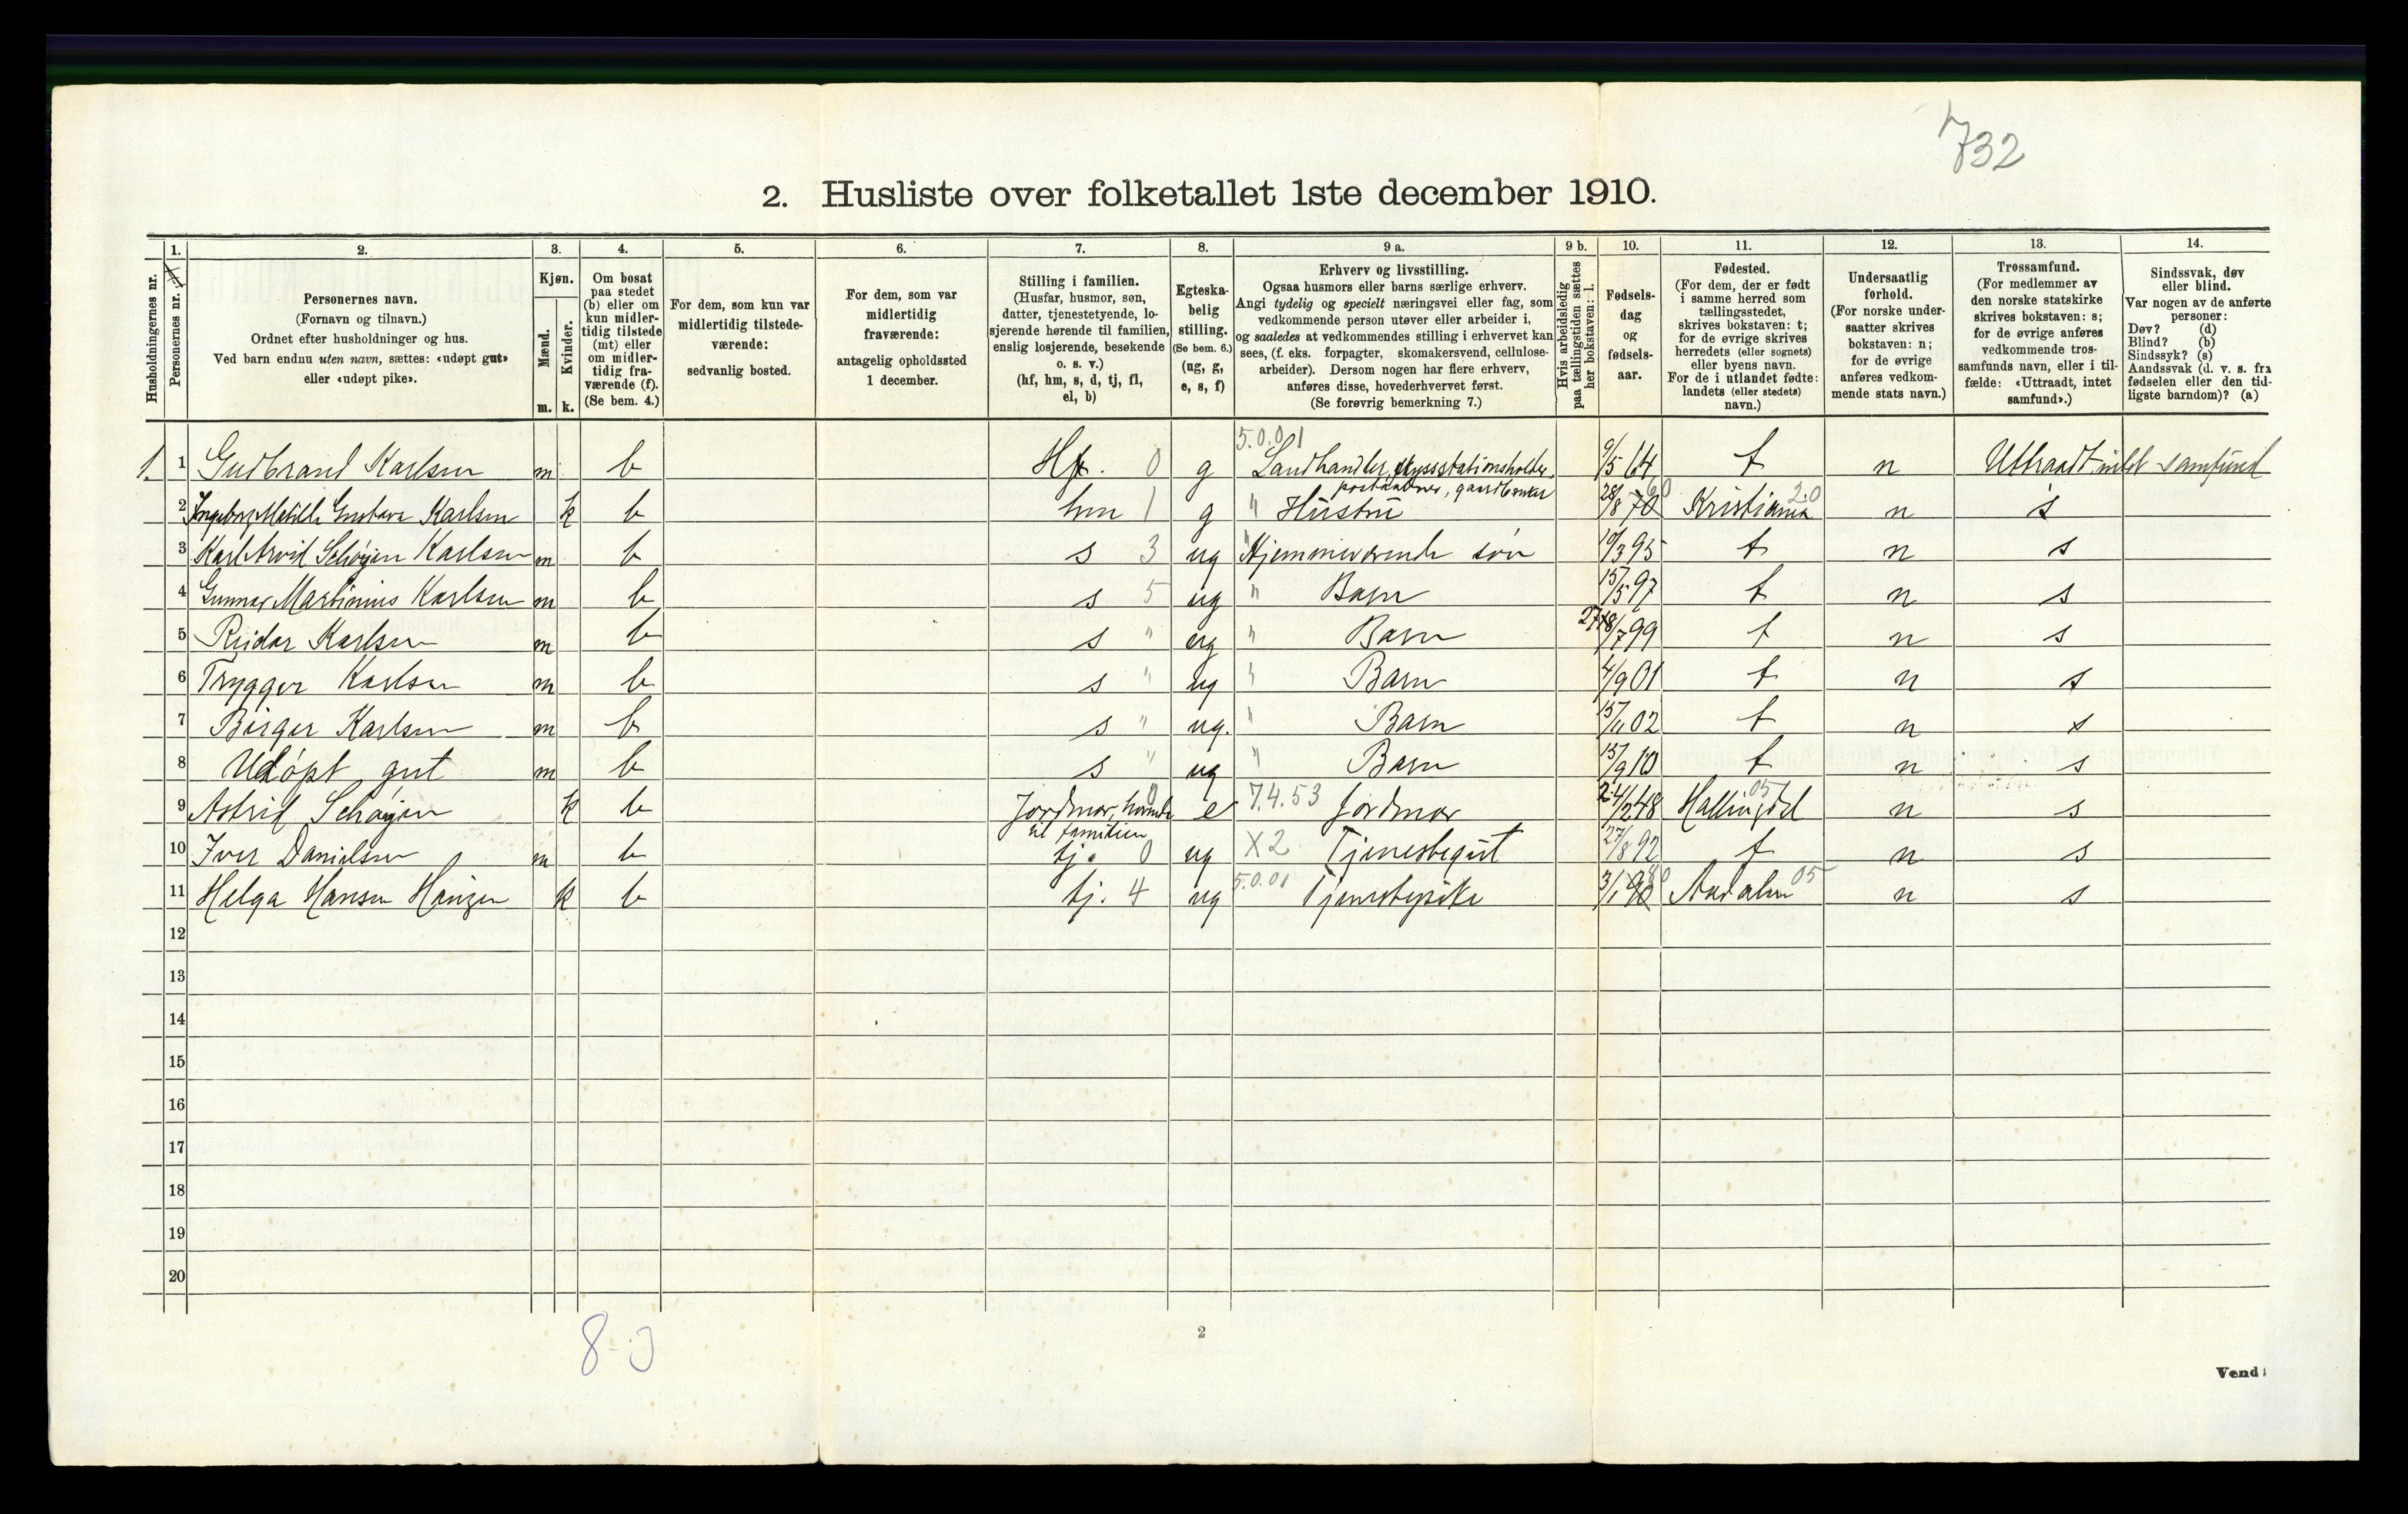 732
2. Husliste over folketallet 1ste december 1910.
Husholdningernes nr.
1.
Personernes nr.
2.
Personernes navn.
(Fornavn og tilnavn.)
Ordnet efter husholdninger og hus.
Ved barn endnu uten navn, sættes: «udøpt gut»
eller «udøpt pike».
3.
Kjøn.
Mænd.
Kvinder.
m. k.
4.
Om bosat
paa stedet
(b) eller om
kun midler-
tidig tilstede
(mt) eller
om midler-
tidig fra-
værende (f).
(Se bem. 4.)
5.
For dem, som kun var
midlertidig tilstede-
værende:
sedvanlig bosted.
6.
For dem, som var
midlertidig
fraværende:
antagelig opholdssted
1 december.
7.
Stilling i familien.
(Husfar, husmor, søn,
datter, tjenestetyende, lo-
sjerende hørende til familien,
enslig losjerende, besøkende
o. s. v.)
(hf, hm, s, d, tj, fl,
el, b)
8.
Egteska-
belig
stilling.
(Se bem. 6.)
(ug, g,
e, s, f)
9 a.
Erhverv og livsstilling.
Ogsaa husmors eller barns særlige erhverv.
Angi tydelig og specielt næringsvei eller fag, som
vedkommende person utøver eller arbeider i,
og saaledes at vedkommendes stilling i erhvervet kan
sees, (f. eks. forpagter, skomakersvend, cellulose-
arbeider). Dersom nogen har flere erhverv,
anføres disse, hovederhvervet først.
(Se forøvrig bemerkning 7.)
9 b.
Hvis arbeidsledig
paa tællingstiden sættes
her bokstaven: l.
10.
Fødsels-
dag
og
fødsels-
aar.
11.
Fødested.
(For dem, der er født
i samme herred som
tællingsstedet,
skrives bokstaven: t;
for de øvrige skrives
herredets (eller sognets)
eller byens navn.
For de i utlandet fødte:
landets (eller stedets)
navn.)
12.
Undersaatlig
forhold.
(For norske under-
saatter skrives
bokstaven: n;
for de øvrige
anføres vedkom-
mende stats navn.)
13.
Trossamfund.
(For medlemmer av
den norske statskirke
skrives bokstaven: s;
for de øvrige anføres
vedkommende tros-
samfunds navn, eller i til-
fælde: «Uttraadt, intet
samfund».)
14.
Sindssvak, døv
eller blind.
Var nogen av de anførte
personer:
Døv? (d)
Blind? (b)
Sindssyk? (s)
Aandssvak (d. v. s. fra
fødselen eller den tid-
ligste barndom)? (a)
5.0.01
1. 1 Gudbrand Karlsen m b Hf. 0 g Landhandler, skysstationsholder, 9/5 64 t n Uttraadt intet samfund
postaabner, gaardbruker
2 Ingeborg Matilde Gustava Karlsen k b hm 1 g " Hustru 28/8 70 60 Kristiania 20 n s
3 Karl Arvid Schøyen Karlsen m b s 3 ug Hjemmeværende søn 10/3 95 t n s
4 Gunnar Martinius Karlsen m b s 5 ug " Barn 15/5 97 t n s
5 Reidar Karlsen m b s " ug " Barn /7 99 t n s
6 Trygger Karlsen m b s " ug " Barn 4/9 01 t n s
7 Birger Karlsen m b s " ug. " Barn 15/11 02 t n s
8 Udöpt gut m b s " ug " Barn 15/9 10 t n s
9 Astrid Schøyen k b Jordmor, hørende 0 e 7.4.53 Jordmor 24/2 48 Hallingdal 05 n s
til familien
10 Iver Danielsen m b tj. 0 ug X2 Tjenestegut 27/8 92 t n s
11 Helga Hansen k b tj. 4 ug 5.0.01 Tjenestepike 3/1 90 Aadalen 05 n s
12
13
14
15
16
17
18
19
20
8-3
2
Vend!